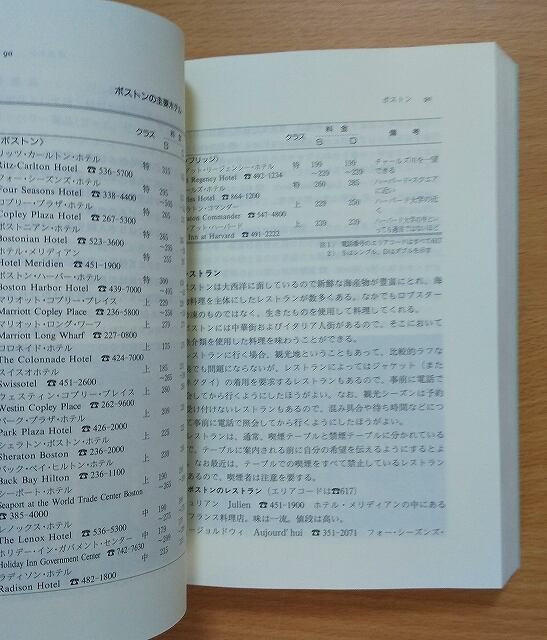 90
ボストンの主要ホテル
クラス 料金
S
ボストン〉
リッツ・カールトン・ホテル 特 315
Ritz-Carlton Hotel ☎536-5700
フォー・シーズンズ・ホテル 特 295
Four Seasons Hotel ☎338-4400
コプリー・プラザ・ホテル 特
Copley Plaza Hotel ☎267-5300
ボストニアン・ホテル 特 245
Bostonian Hotel ☎523-3600
ホテル・メリディアン 特
Hotel Meridien ☎451-1900
ボストン・ハーバー・ホテル 特
Boston Harbor Hotel ☎439-7000
マリオット・コプリー・プレイス 上 229
Marriott Copley Place ☎236-5800
マリオット・ロング・ワーフ 上
Marriott Long Wharf ☎227-0800
コロネイド・ホテル 上
The Colonnade Hotel ☎424-7000
スイスオテル 上 185
Swissotel ☎451-2600
ウェスティン・コプリー・プレイス 上
Westin Copley Place ☎262-9600
パーク・プラザ・ホテル 上
Park Plaza Hotel ☎426-2000
シェラトン・ボストン・ホテル 上
Sheraton Boston ☎236-2000
バック・ベイ・ヒルトン・ホテル 上
Back Bay Hilton ☎236-1100
シーポート・ホテル 上
Seaport at the World Trade Center Boston
☎385-4000
レノックス・ホテル 中
The Lenox Hotel ☎536-5300
ホリデー・イン・ガバメント・センター 中
Holiday Inn Government Center ☎742-7630
ラディソン・ホテル 中 215
Radison Hotel ☎482-1800
ボストン
クラス 料金 備考
S D
ブリッジ〉
アット・リージェンシー・ホテル 特 199 199 チャールズ川を一望
Regency Hotel ☎492-1234 ~229 ~229 できる
ールズ・ホテル 特 260 285 ハーバード・スクエア
les Hotel ☎864-1200 に近い
トン・コマンダー 上 229 229 ハーバード大学の近
ton Commander ☎547-4800 く
アット・ハーバード 上 229 229 ハーバード大学の中とい
Inn at Harvard ☎491-2222 っても過言ではないほど
注1) 電話番号のエリアコードはすべて617
2) Sはシングル、Dはダブルを示す
レストラン
ボストンは大西洋に面しているので新鮮な海産物が豊富にとれ、海
料理を主体にしたレストランが数多くある。なかでもロブスター
凍のものではなく、生きたものを使用して料理してくれる。
ストンには中華街およびイタリア人街があるので、そこにおいて
魚介類を使用した料理を味わうことができる。
ストランに行く場合、観光地ということもあって、比較的ラフな
でも問題にならないが、レストランによってはジャケット（また
クタイ）の着用を要求するレストランもあるので、事前に電話で
してから行くようにしたほうがよい。なお、観光シーズンは予約
受け付けないレストランもあるので、混み具合や待ち時間などにつ
て事前に電話で照会してから行くようにしたほうがよい。
レストランは、通常、喫煙テーブルと禁煙テーブルに分かれている
で、テーブルに案内される前に自分の希望を伝えるようにするとよ
なお最近は、テーブルでの喫煙をすべて禁止しているレストラン
あるので、喫煙者は注意を要する。
ボストンのレストラン（エリアコードは☎617）
ュリアン Julien ☎451-1900 ホテル・メリディアンの中にある
フランス料理店。味は一流。値段は高い。
ージョルドウィ Aujourd'hui ☎351-2071 フォー・シーズンズ・